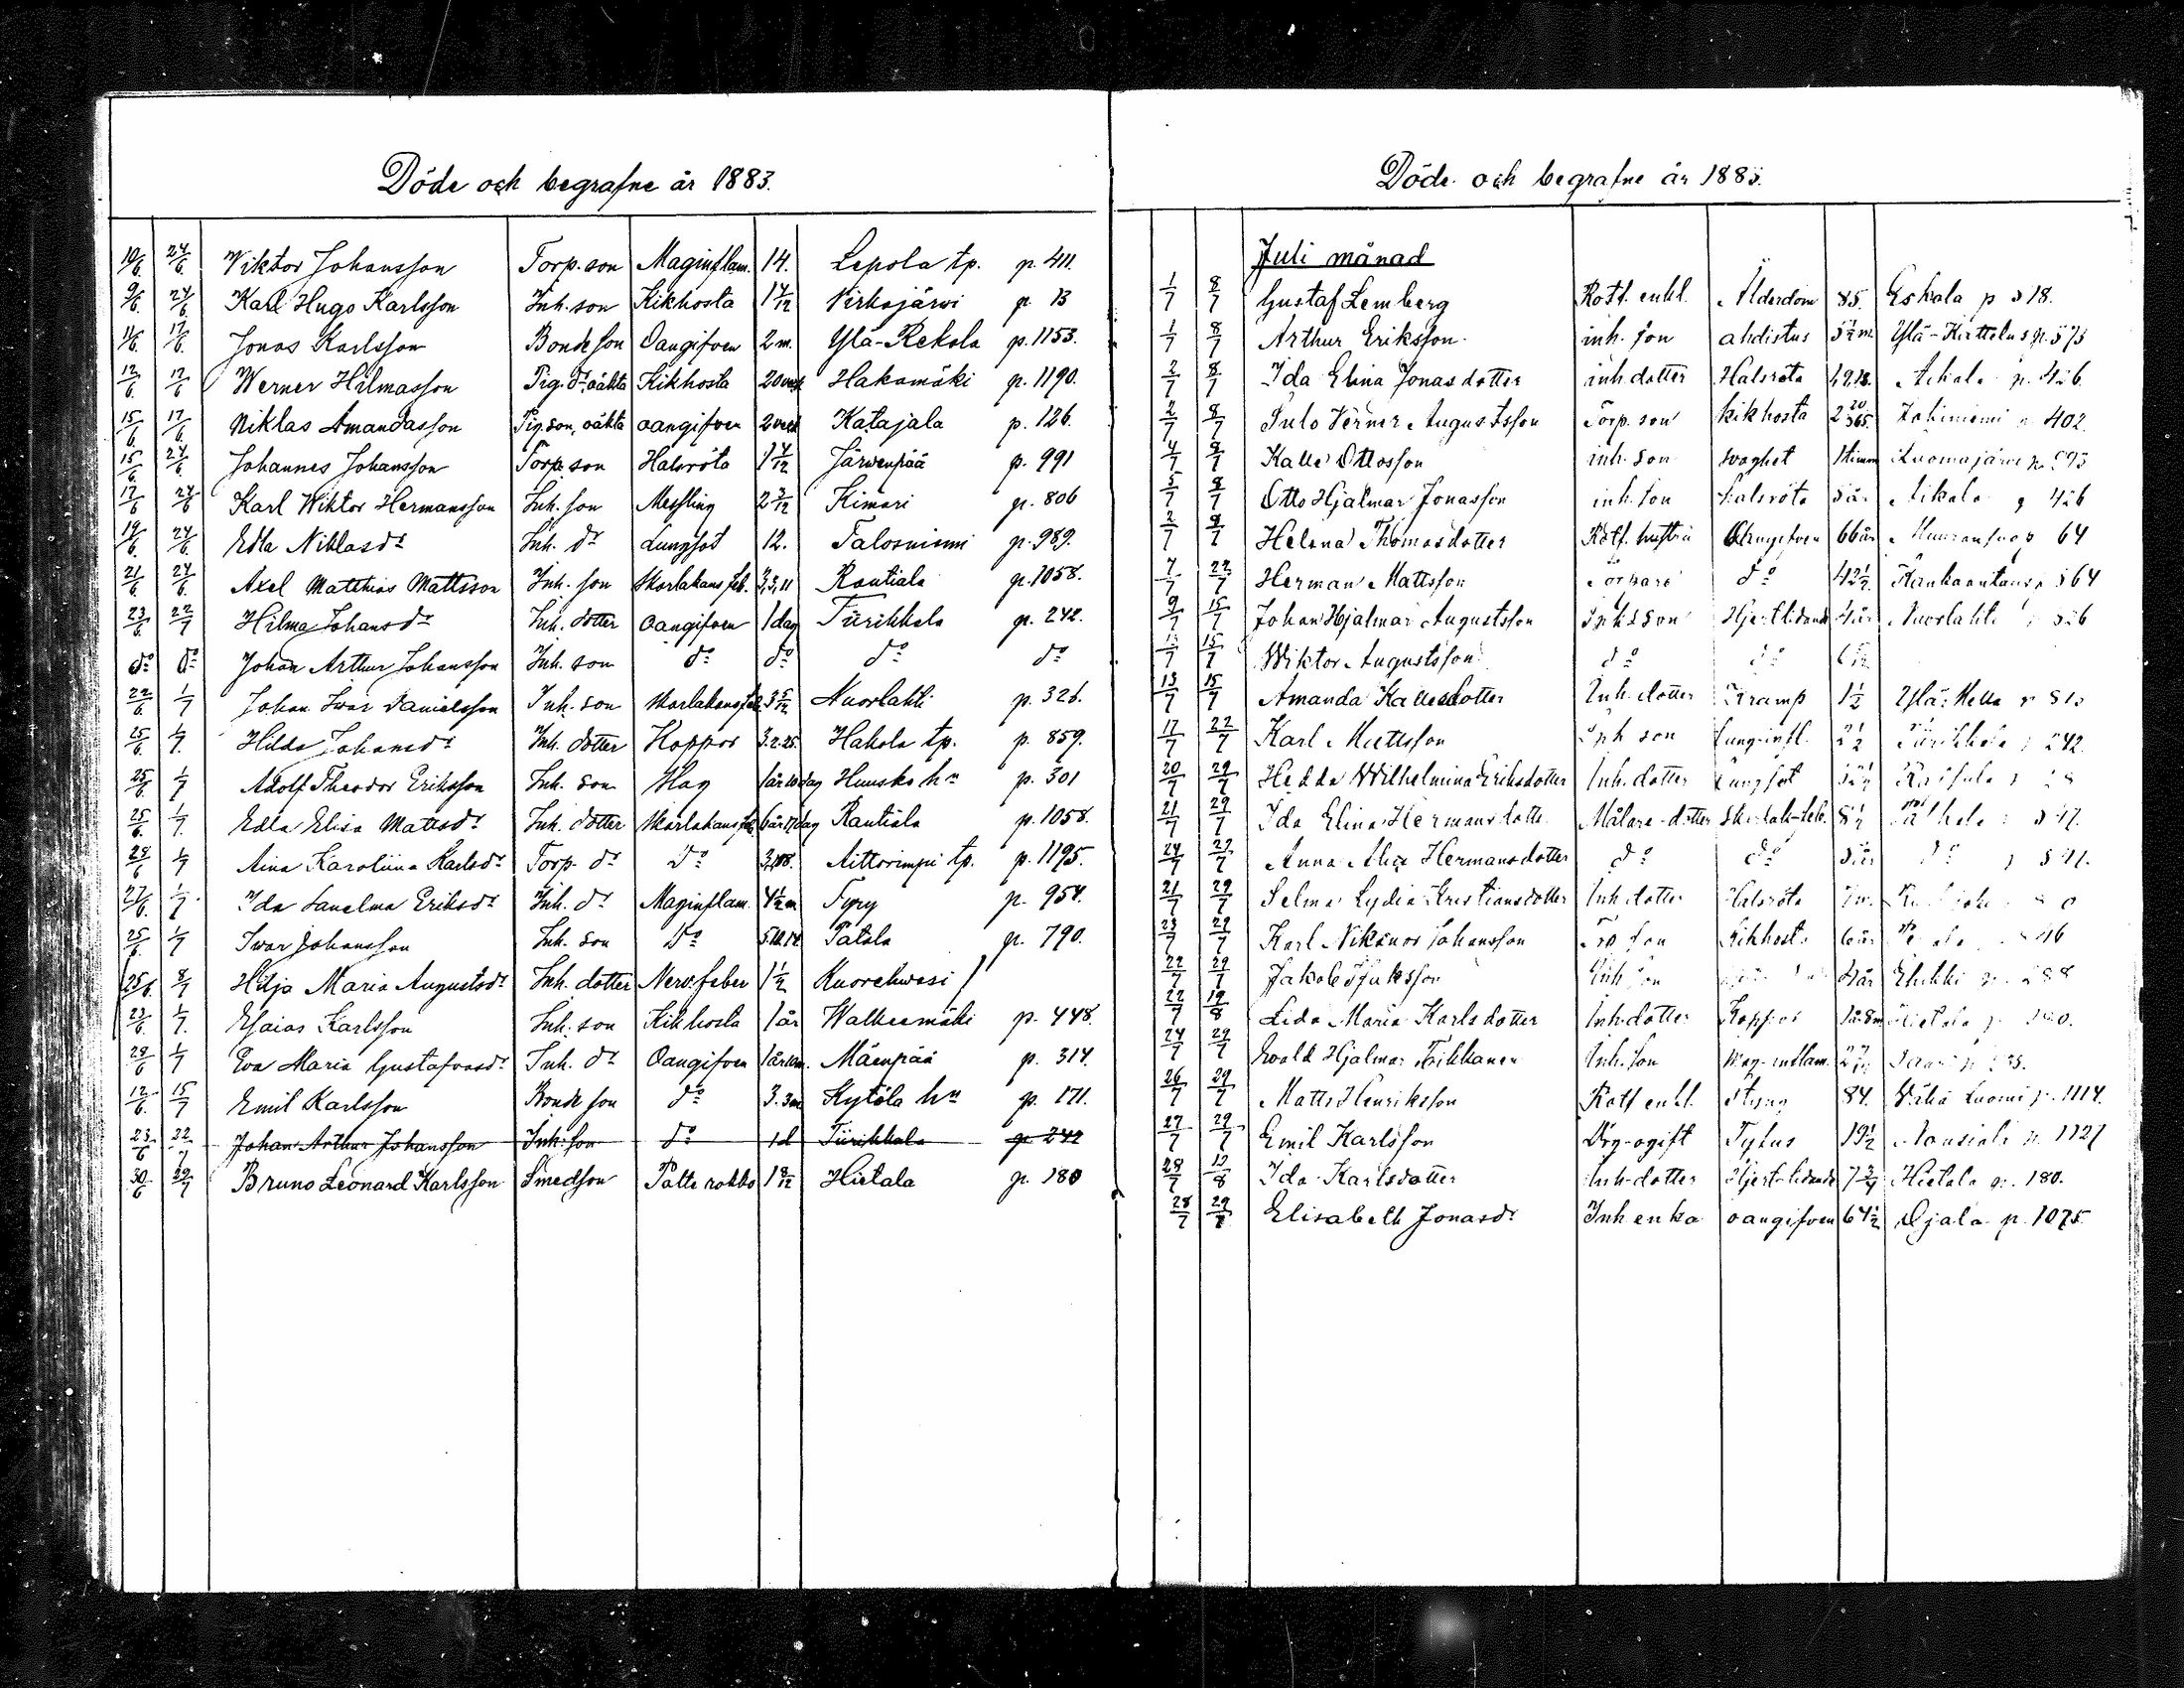 Döde och begrafne år 1883.
10/6. 24/6. Viktor Johansson Torp. son Maginflam. 14. Lepola tp. p. 411.
9/6. 24/6. Karl Hugo Karlsson Inh. son Kikhosta 1 4/12 Virkajärvi p. 13
11/6. 17/6. Jonas Karlsson Bondeson Oangifven 2 m. Ylä-Rekola p. 1153.
12/6. 17/6. Werner Hilmasson Pig. oäkta Kikhosta 20 Hakamäki p. 1190.
15/6 17/6. Niklas Amandasson Pig. son, oäkta oangifven 2 Katajala p. 126.
15/6. 24/6. Johannes Johansson Torp. son Halsröta 1 4/12 Järvenpää p. 991
17/6 24/6 Karl Wiktor Hermansson Inh. son Messling 2 3/12 Kimari p. 806
19/6. 24/6. Edla Niklasdr Inh. dr Lungsot 12. Talosniemi p. 989.
21/6 24/6. Axel Matthias Mattsson Inh. son Skarlakansfeb. 3,3,11 Rautiala p. 1058.
23/6. 22/7 Hilma Johansdr Inh. dotter oangifven 1 dag Tiirikkala p. 242.
do do Johan Arthur Johansson Inh. son do do do do
22/6. 1/7 Johan Ivar Danielsson Inh. son Skarlakansfeb. 3 5/12 Nuorlahti p. 326.
25/6 1/7. Hilda Johansdr Inh. dotter Koppor 3.2.25. Hakola tp. p. 859.
25/6 1/7 Adolf Theodor Eriksson Inh. son Hag 1 år 10 dag Huusko hn p. 301
25/6. 1/7. Edla Elisa Mattsdr Inh. dotter Skarlakansfeb. 6 år 17 dag Rautiala p. 1058.
28/6 1/7 Aina Karoliina Karlsdr Torp. dr do Aittorimpi tp. p. 1195.
27/6. 1/7 Ida Sanelma Eriksdr Inh. dr Maginflam. 4 1/2 m Tyry p. 954.
25/6. 1/7 Ivar Johansson Inh. son do Patala p. 790.
25/6. 8/7 Hilja Maria Augustsdr Inh. dotter Nerv. feber 1 1/2 Kuorehwesi
23/6 1/7. Esaias Karlsson Inh. son Kikhosta 1 år Walkeemäki p. 448.
28/6 1/7 Eva Maria Gustafvasdr Inh. dr Oangifven Mäenpää p. 314.
12/6. 15/7 Emil Karlsson Bondeson do 3. 3m Kytölä hn p. 171.
23/6 22/7 Johan Arthur Johansson Inh. son do 1d Tiirikkala p. 242
30/6 29/7 Bruno Leonard Karlsson Smedson Patterokko 1 8/12 Hietala p. 180
Döde och begrafne år 1883.
Juli månad
1/7 8/7 Gustaf Lemberg Rotf. enkl. Ålderdom 85. Eskola p 318.
1/7 8/7 Arthur Eriksson inh. son ahdistus 5 1/2 m. Ylä-Kittelus p.
2/7 8/7 Ida Elina Jonasdotter inh. dotter Halsröta Aikala p. 426.
2/7 8/7 Julo Verner Augustsson Torp. son kikhosta 2 20/365. 402.
4/7 8/7 Kalle Ottosson inh. son svaghet 1 timm Luomajärvi
5/7 8/7 Otto Hjalmar Jonasson inh. son halsröta Aikala p 426
2/7 8/7 Helena Thomasdotter Rotf. hustru Oangifven 66 år 64
7/7 22/7 Herman Mattsson Torpare do 42 1/2 564
9/7 15/7 Johan Hjalmar Augustsson Inh. son Hjertlidande 4 år Nuorlahti 326
13/7 15/7 Wiktor Augustsson do do
13/7 15/7 Amanda Kallesdotter Inh. dotter Kramp 1 1/2 Ylä-Hella
17/7 22/7 Karl Mattsson Inh. son Lunginfl. 2 1/2 Tiirikkala p 242
20/7 29/7 Hedda Wilhelmina Eriksdotter Inh. dotter Lungsot
21/7 29/7 Ida Elina Hermansdotter Målare-dotter Skarlak-feb. 8 1/2
24/7 29/7 Anna Alice Hermansdotter do do do
21/7 29/7 Selma Lydia Kristiansdotter Inh. dotter Halsröta
23/7 29/7 Karl Nikanor Johansson son Kikhosta 6 år
22/7 29/7 Jakob Isaksson Inh. son 4 år
22/7 19/8 Lida Maria Karlsdotter Inh. dotter Koppor 1 år 8 m Hietala p. 180.
24/7 29/7 Evald Hjalmar Inh. son Mag-inflam.
26/7 29/7 Matts Henriksson Rotf enkl. Styng 84. Wähä Luomi p. 1114.
27/7 29/7 Emil Karlsson Drg-ogift Tyfus 19 1/2 Nousiala p. 1127
28/7 12/8 Ida Karlsdotter Inh-dotter Hjert-lidande 7 3/4 Hietala p. 180.
28/7 29/7 Elisabeth Jonasdr Inh enka oangifven 64 1/2 Ojala p. 1075